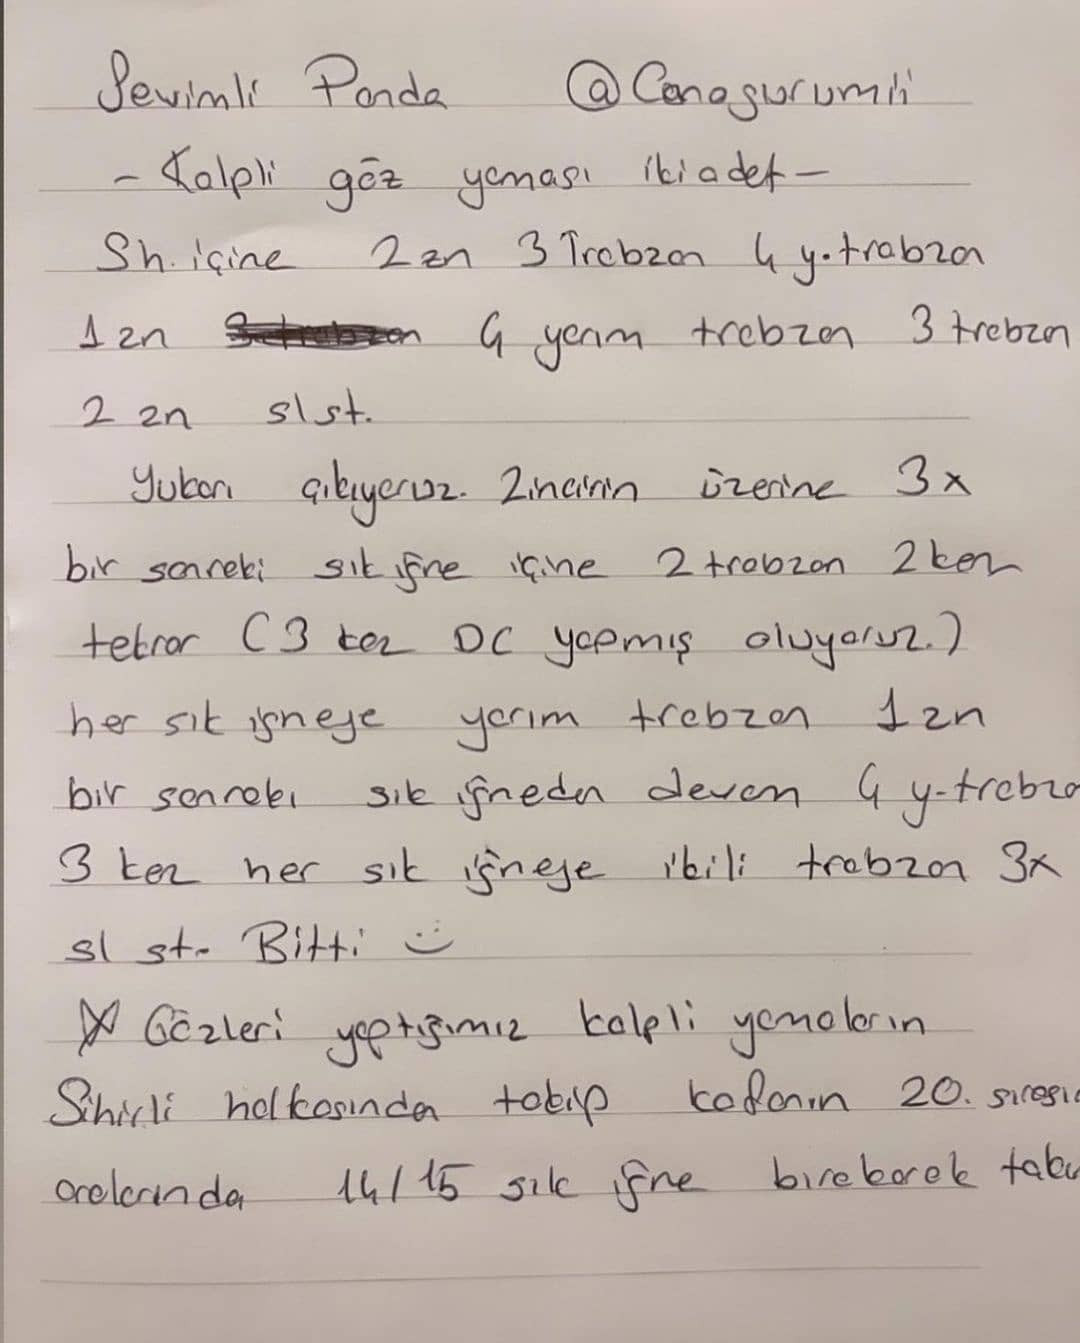 Sevimli Panda @Canagurumii
- Kalpli göz yaması iki adet -
Sh. içine 2 zn 3 Trabzan 4 y.trabzan
1 zn 4 yarım trabzan 3 trabzan
2 zn sl st.
Yukarı çıkıyoruz. Zincirin üzerine 3x
bir sonraki sık iğne içine 2 trabzan 2 kez
tekrar (3 kez DC yapmış oluyoruz.)
her sık iğneye yarım trabzan 1 zn
bir sonraki sık iğneden devam 4 y-trabza
3 kez her sık iğneye ikili trabzan 3x
sl st. Bitti :)
X Gözleri yaptığımız kalpli yamaların
Sihirli halkasından takıp kafanın 20. sırası
aralarından 14/15 sık iğne bırakarak takı